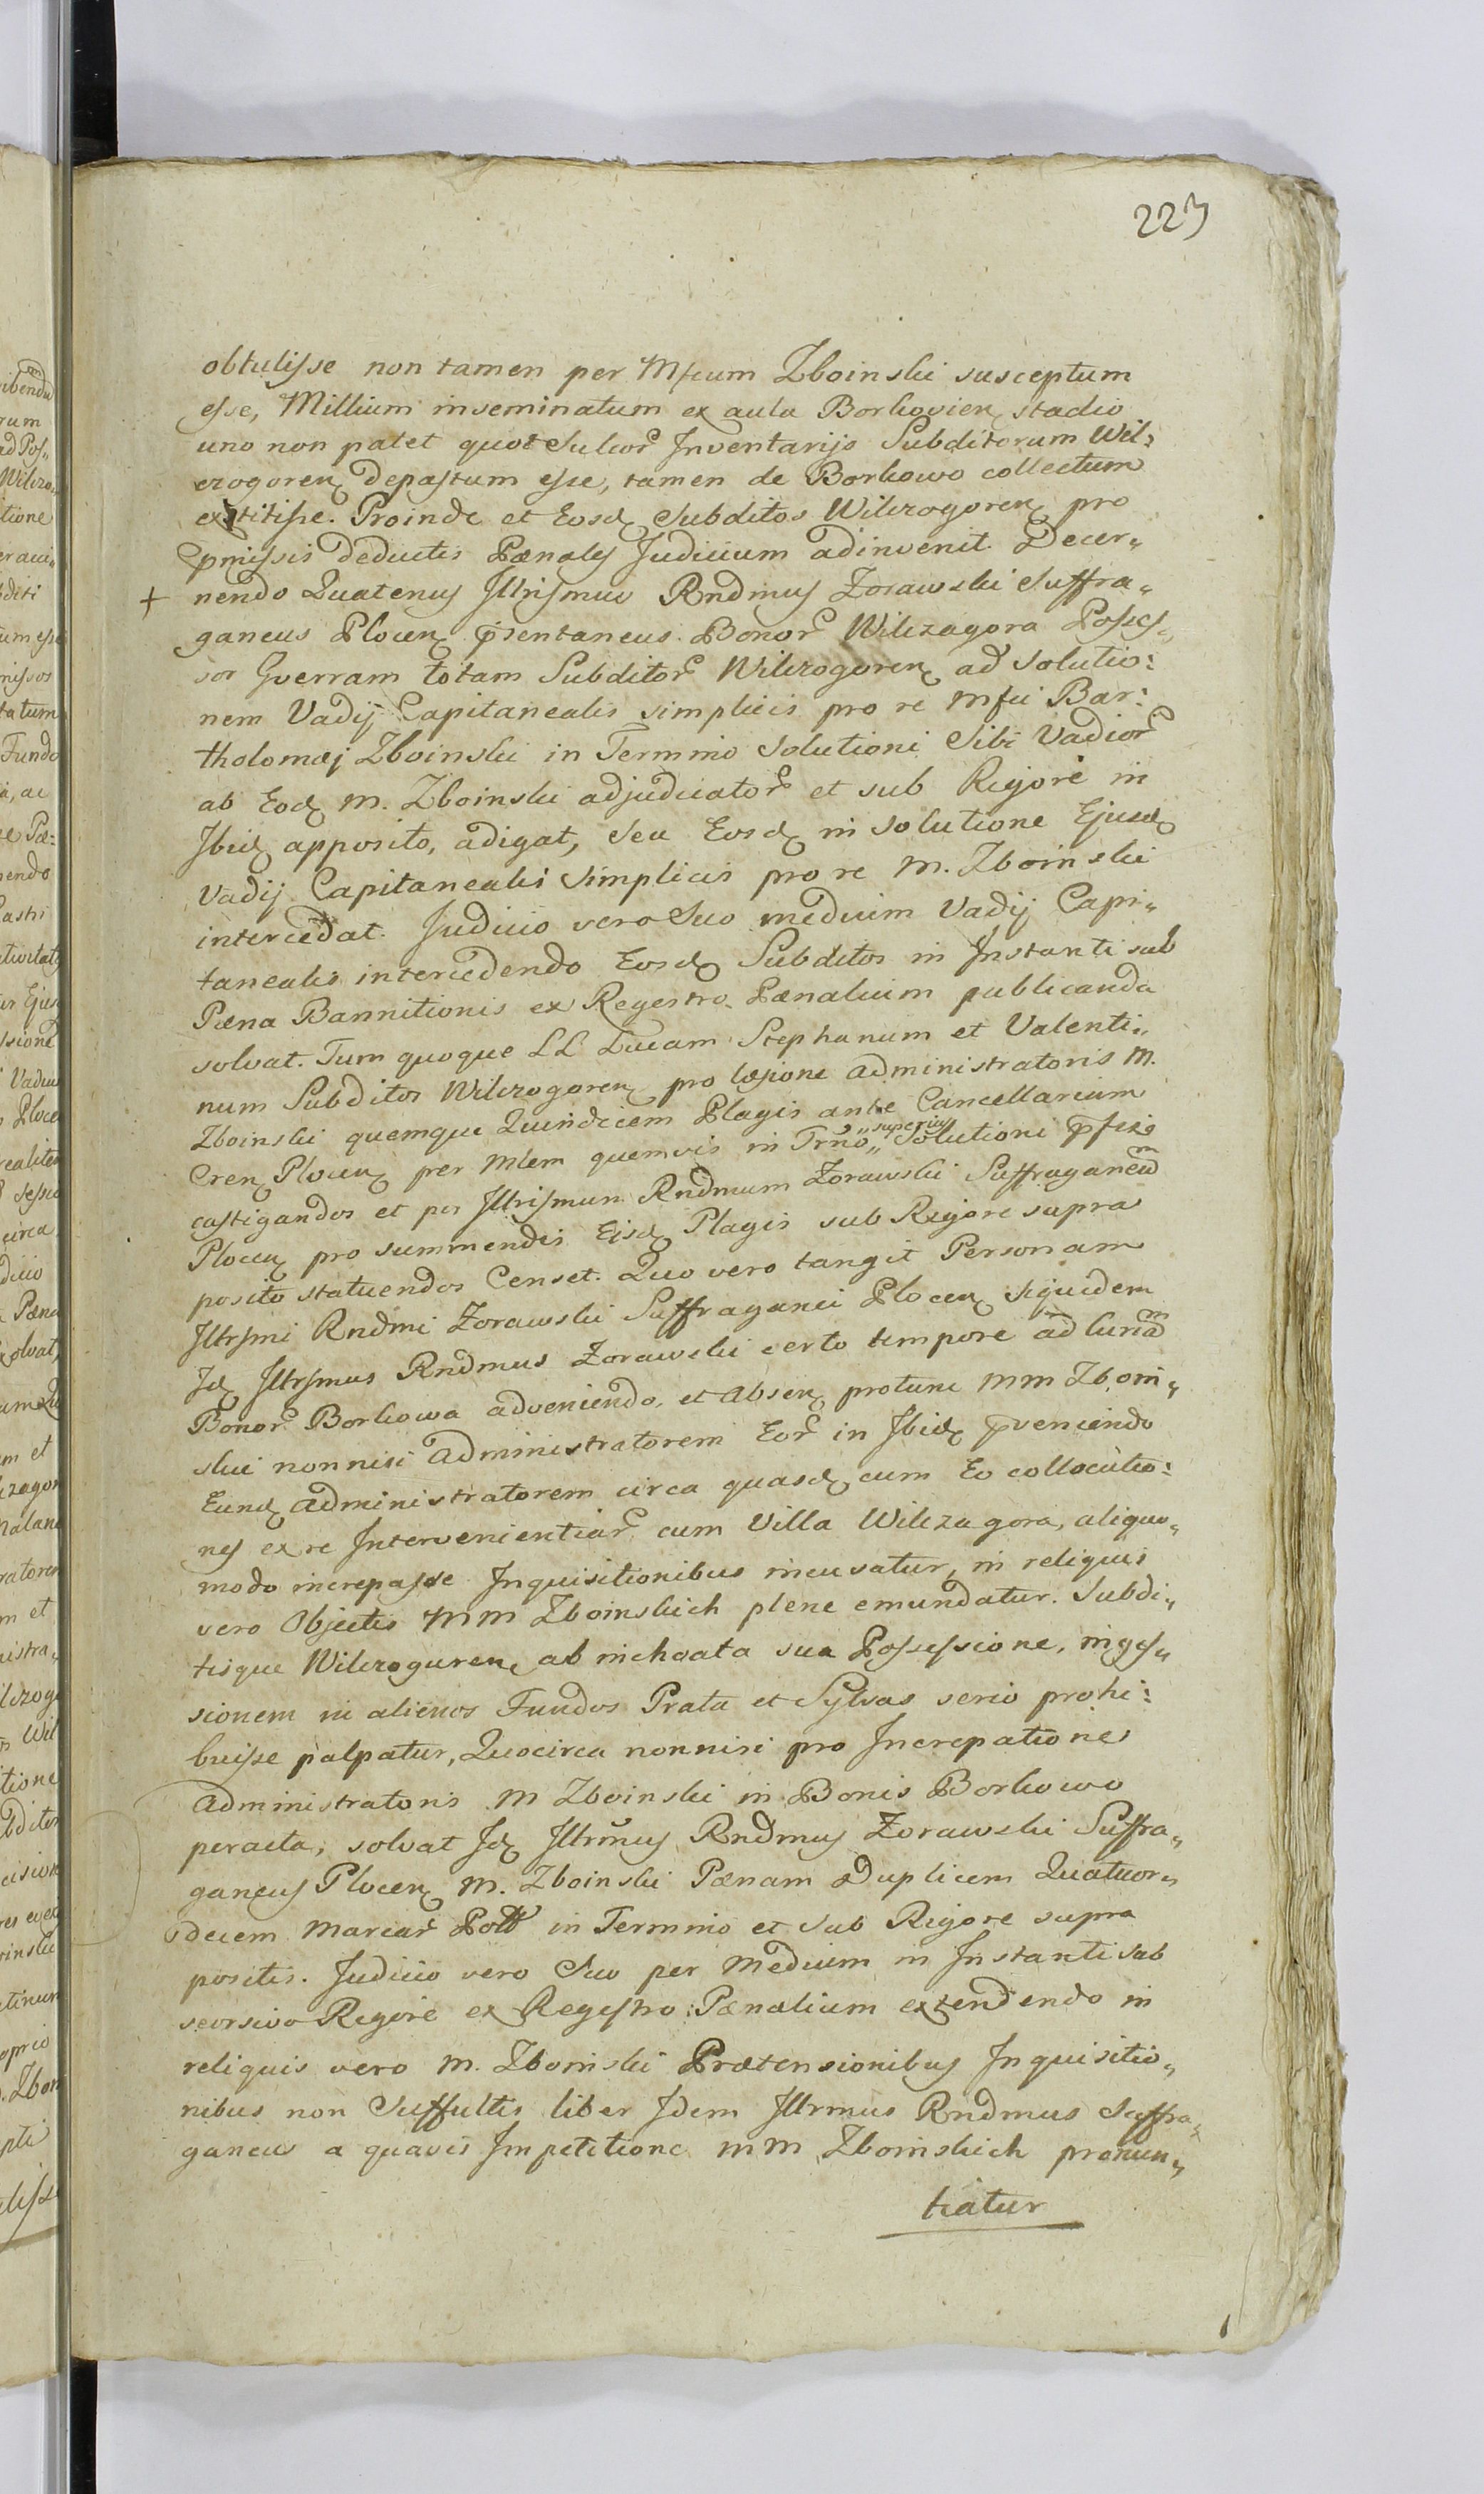 223
obtulisse non tamen per Mfcum Zboinski susceptum
esse, Millium inseminatum ex aula Borkovien stadio
uno non patet quot Sulcor Inventarijs Subditorum Wil:
czogoren depastum esse, tamen de Borkowo collectum
extitisse. Proinde et Eosd Subditos Wilczogoren pro
pmissis deductis Pænales Judicium adinvenit. Decer„
+ nendo Quatenus Illrismus Rndmus Zorawski Suffra„
ganeus Plocen psentaneus Bonor Wilczagora Posses„
sor Gverram totam Subditor Wilczogoren ad solutio:
nem Vadij Capitanealis simplicis pro re Mfci Bar:
tholomæj Zboinski in Termino Solutioni Sibi Vadior
ab Eod M. Zboinski adjudicator et sub Rigore in
Ibid apposito, adigat, seu Eosd in solutione Ejusd
Vadij Capitanealis Simplicis pro re M. Zboinski
intercedat. Judicio vero Suo medium Vadij Capi„
tanealis intercedendo Eosd Subditos in Instanti sub
Pæna Bannitionis ex Regestro Pænalium publicanda
solvat. Tum quoque LL Lucam Stephanum et Valenti„
num Subditos Wilczogoren pro læsione administratoris M.
Zboinski quemque Quindecem Plagis ante Cancellariam
Cren Plocen per Mlem quemvis in Trno „superius„ Solutioni pfixo
castigandos et per Illrismum Rndmum Zorawski Suffraganeum
Plocen pro summendis Eisd Plagis sub Rigore supra
posito statuendos Censet. Quo vero tangit Personam
Illrsmi Rndmi Zorawski Suffraganei Plocen siquidem
Id Illrsmus Rndmus Zorawski certo tempore ad Curiam
Bonor Borkowa adveniendo, et absen protunc MM Zboin„
skie nonnisi administratorem Eor in Ibid pveniendo
Eund administratorem circa quasd cum Eo collocutio:
nes ex re Intervenientiar cum Villa Wilczagora, aliquo„
modo increpasse Inquisitionibus incusatur, in reliquis
vero Objectis MM Zboinskich plene emundatur. Subdi„
tisque Wilczoguren ab inchoata sua Possessione, inges„
sionem in alienos Fundos Prata et Sylvas serio prohi:
buisse palpatur, Quocirca nonnisi pro Increpatione
Administratoris M Zboinski in Bonis Borkowo
peracta, solvat Id Illrmus Rndmus Zorawski Suffra„
ganeus Plocen M. Zboinski Pænam Duplicem Quatuor„
decem Marcar Poll in Termino et sub Rigore supra
positis. Judicio vero Suo per Medium in Instanti sub
seorsivo Rigore ex Regestro Pænalium extendendo in
reliquis vero M. Zboinski Prætensionibus Inquisitio„
nibus non Suffultis liber Idem Illrmus Rndmus Suffra„
ganeus a quavis Impetitione MM Zboinskich pronun„
tiatur